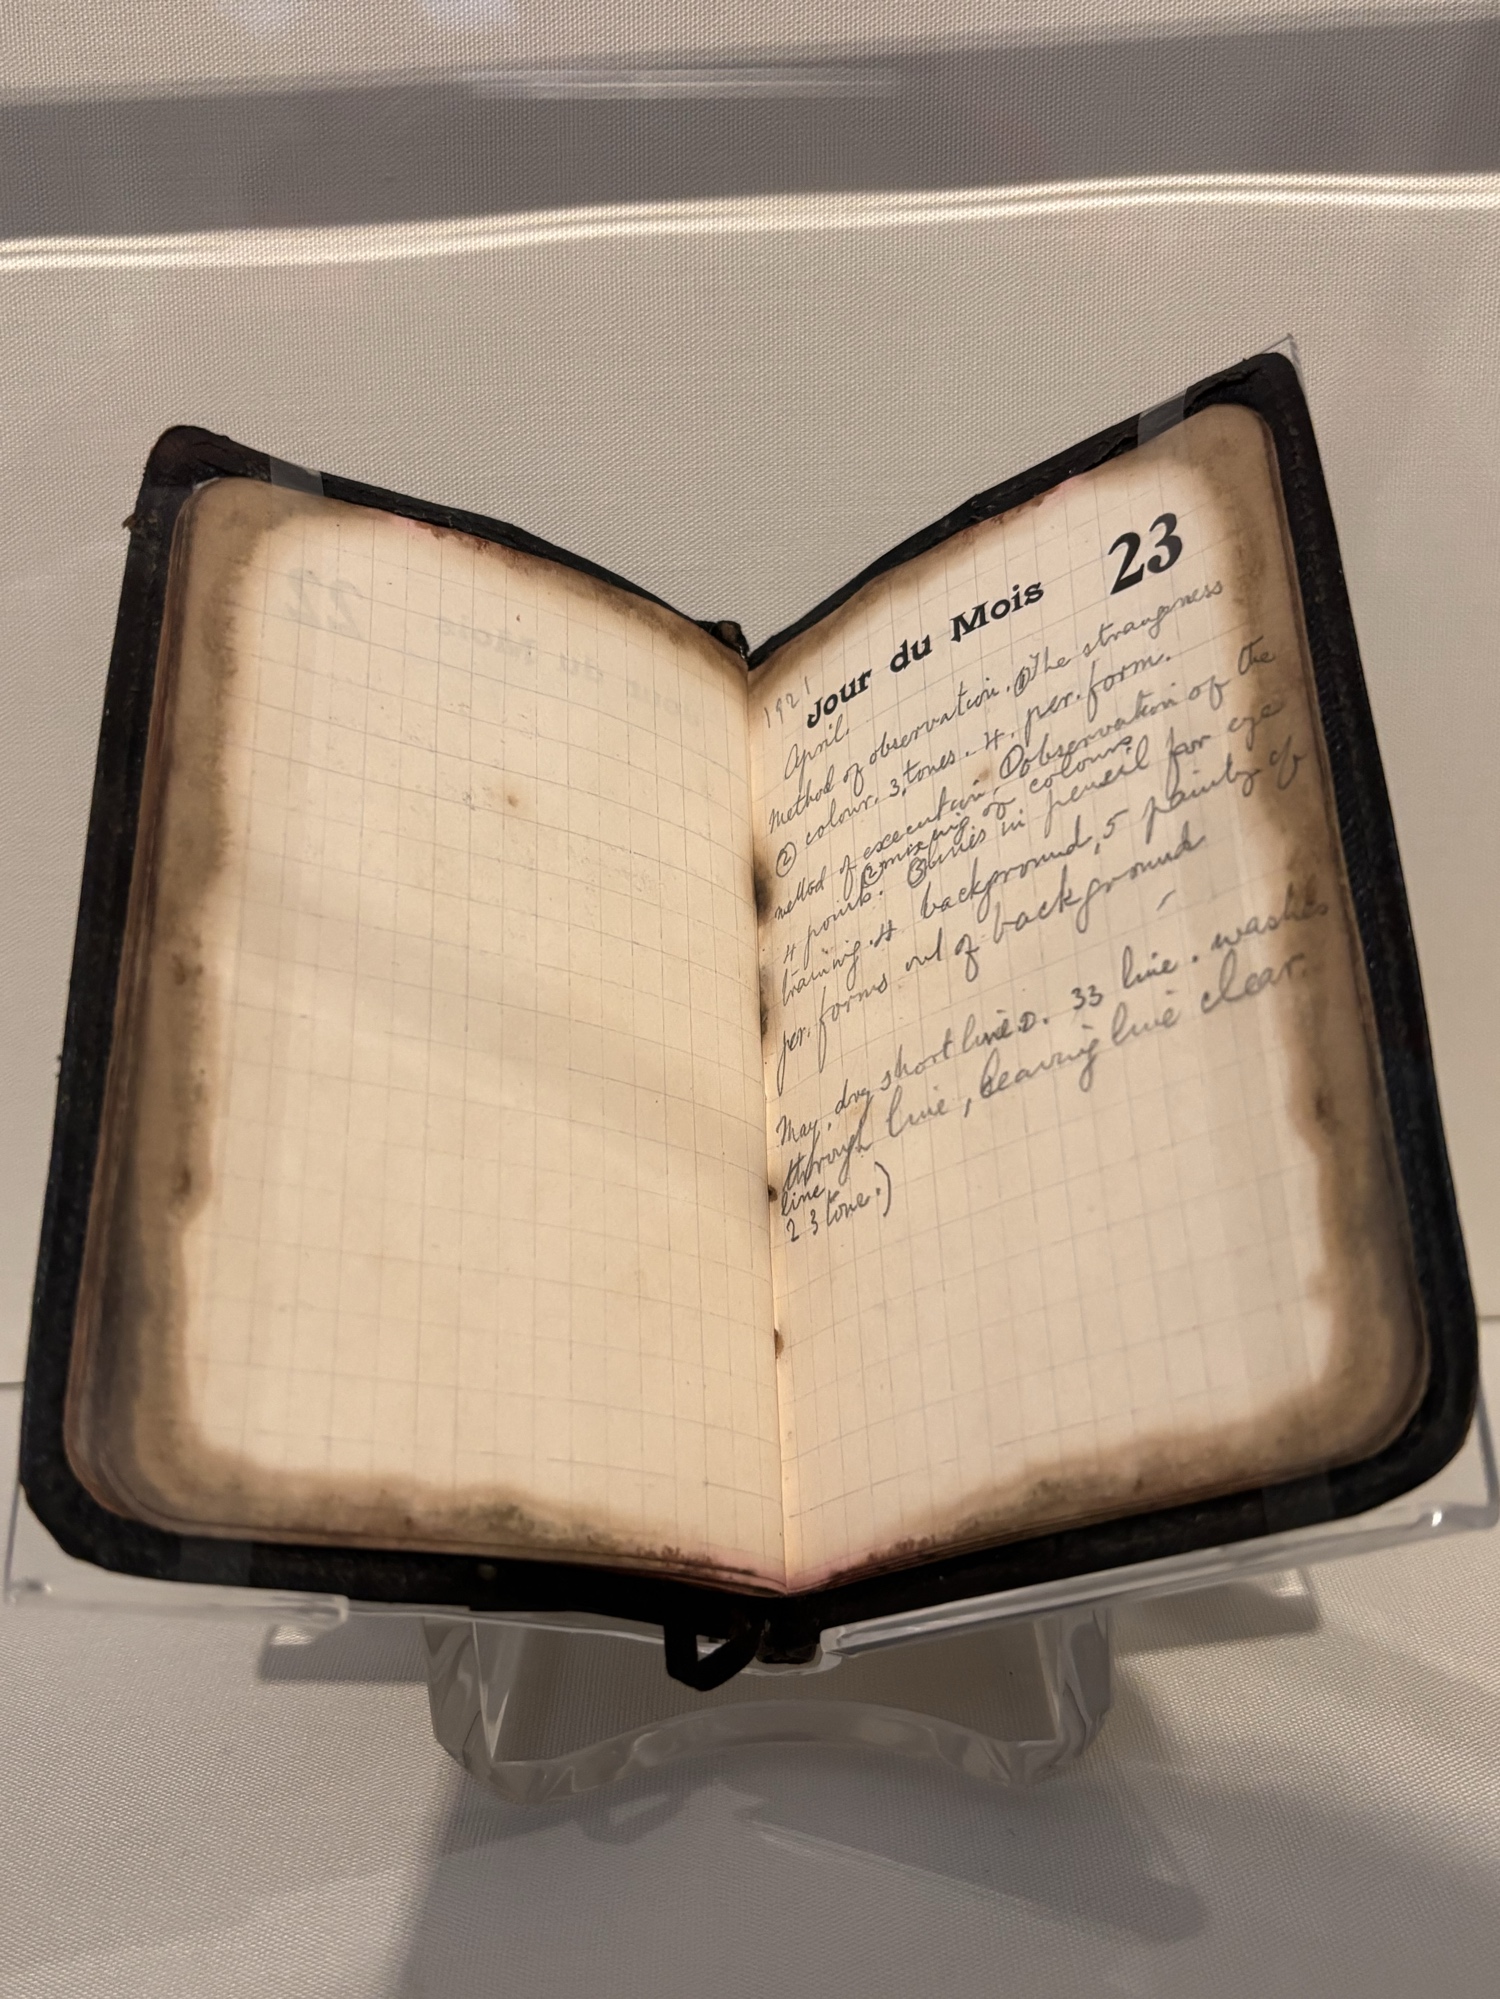 Jour du Mois 23
1921
April.
Method of observation. ① The strangeness
② colour. 3, tones. 4. per. form.
method of execution, ① observation of the
4 points. ② mixing of colours
③ lines in pencil for eye
training. 4 background, 5 painting of
per. forms out of background
May, dry short lines. 33 line. washes
through line, leaving line clear.
line
2 3 tone.)
22
Jour du Mois